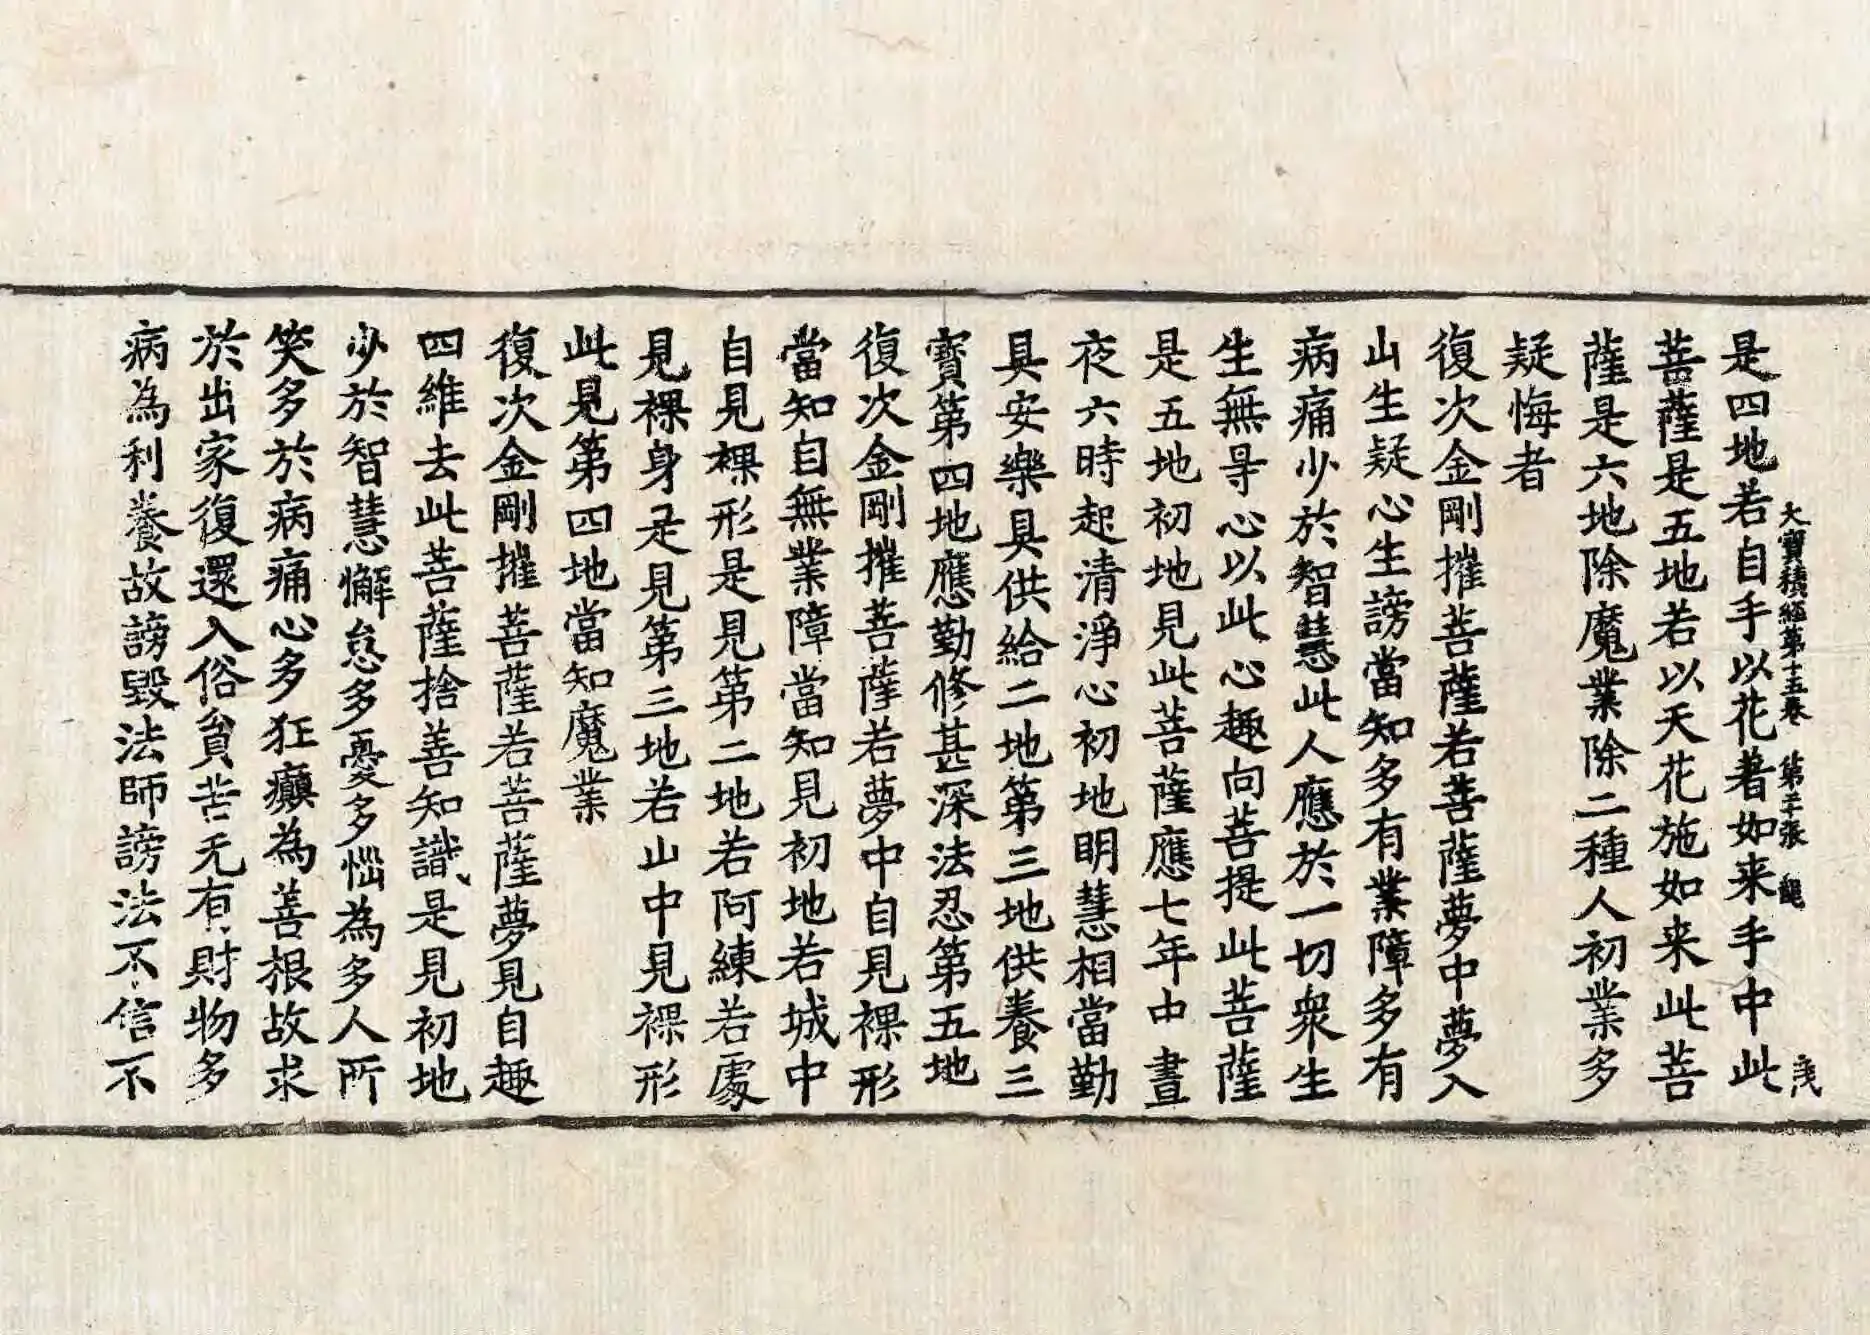 大寶積經第十五卷　第三十張　龍
是四地若自手以花著如来手中此
菩薩是五地若以天花施如来此菩
薩是六地除魔業除二種人初業多
疑悔者
復次金剛摧菩薩若菩薩夢中夢入
山生疑心生謗當知多有業障多有
病痛少於智慧此人應於一切衆生
生無㝵心以此心趣向菩提此菩薩
是五地初地見此菩薩應七年中晝
夜六時起清淨心初地明慧相當勤
具安樂具供給二地第三地供養三
寳第四地應勤修甚深法忍第五地
復次金剛摧菩薩若夢中自見裸形
當知自無業障當知見初地若城中
自見裸形是見第二地若阿練若處
見裸身是見第三地若山中見裸形
此見第四地當知魔業
復次金剛摧菩薩若菩薩夢見自趣
四維去此菩薩捨善知識是見初地
少於智慧懈怠多憂多惱為多人所
笑多於病痛心多狂癲為善根故求
於出家復還入俗貧苦无有財物多
病為利養故謗毀法師謗法不信不